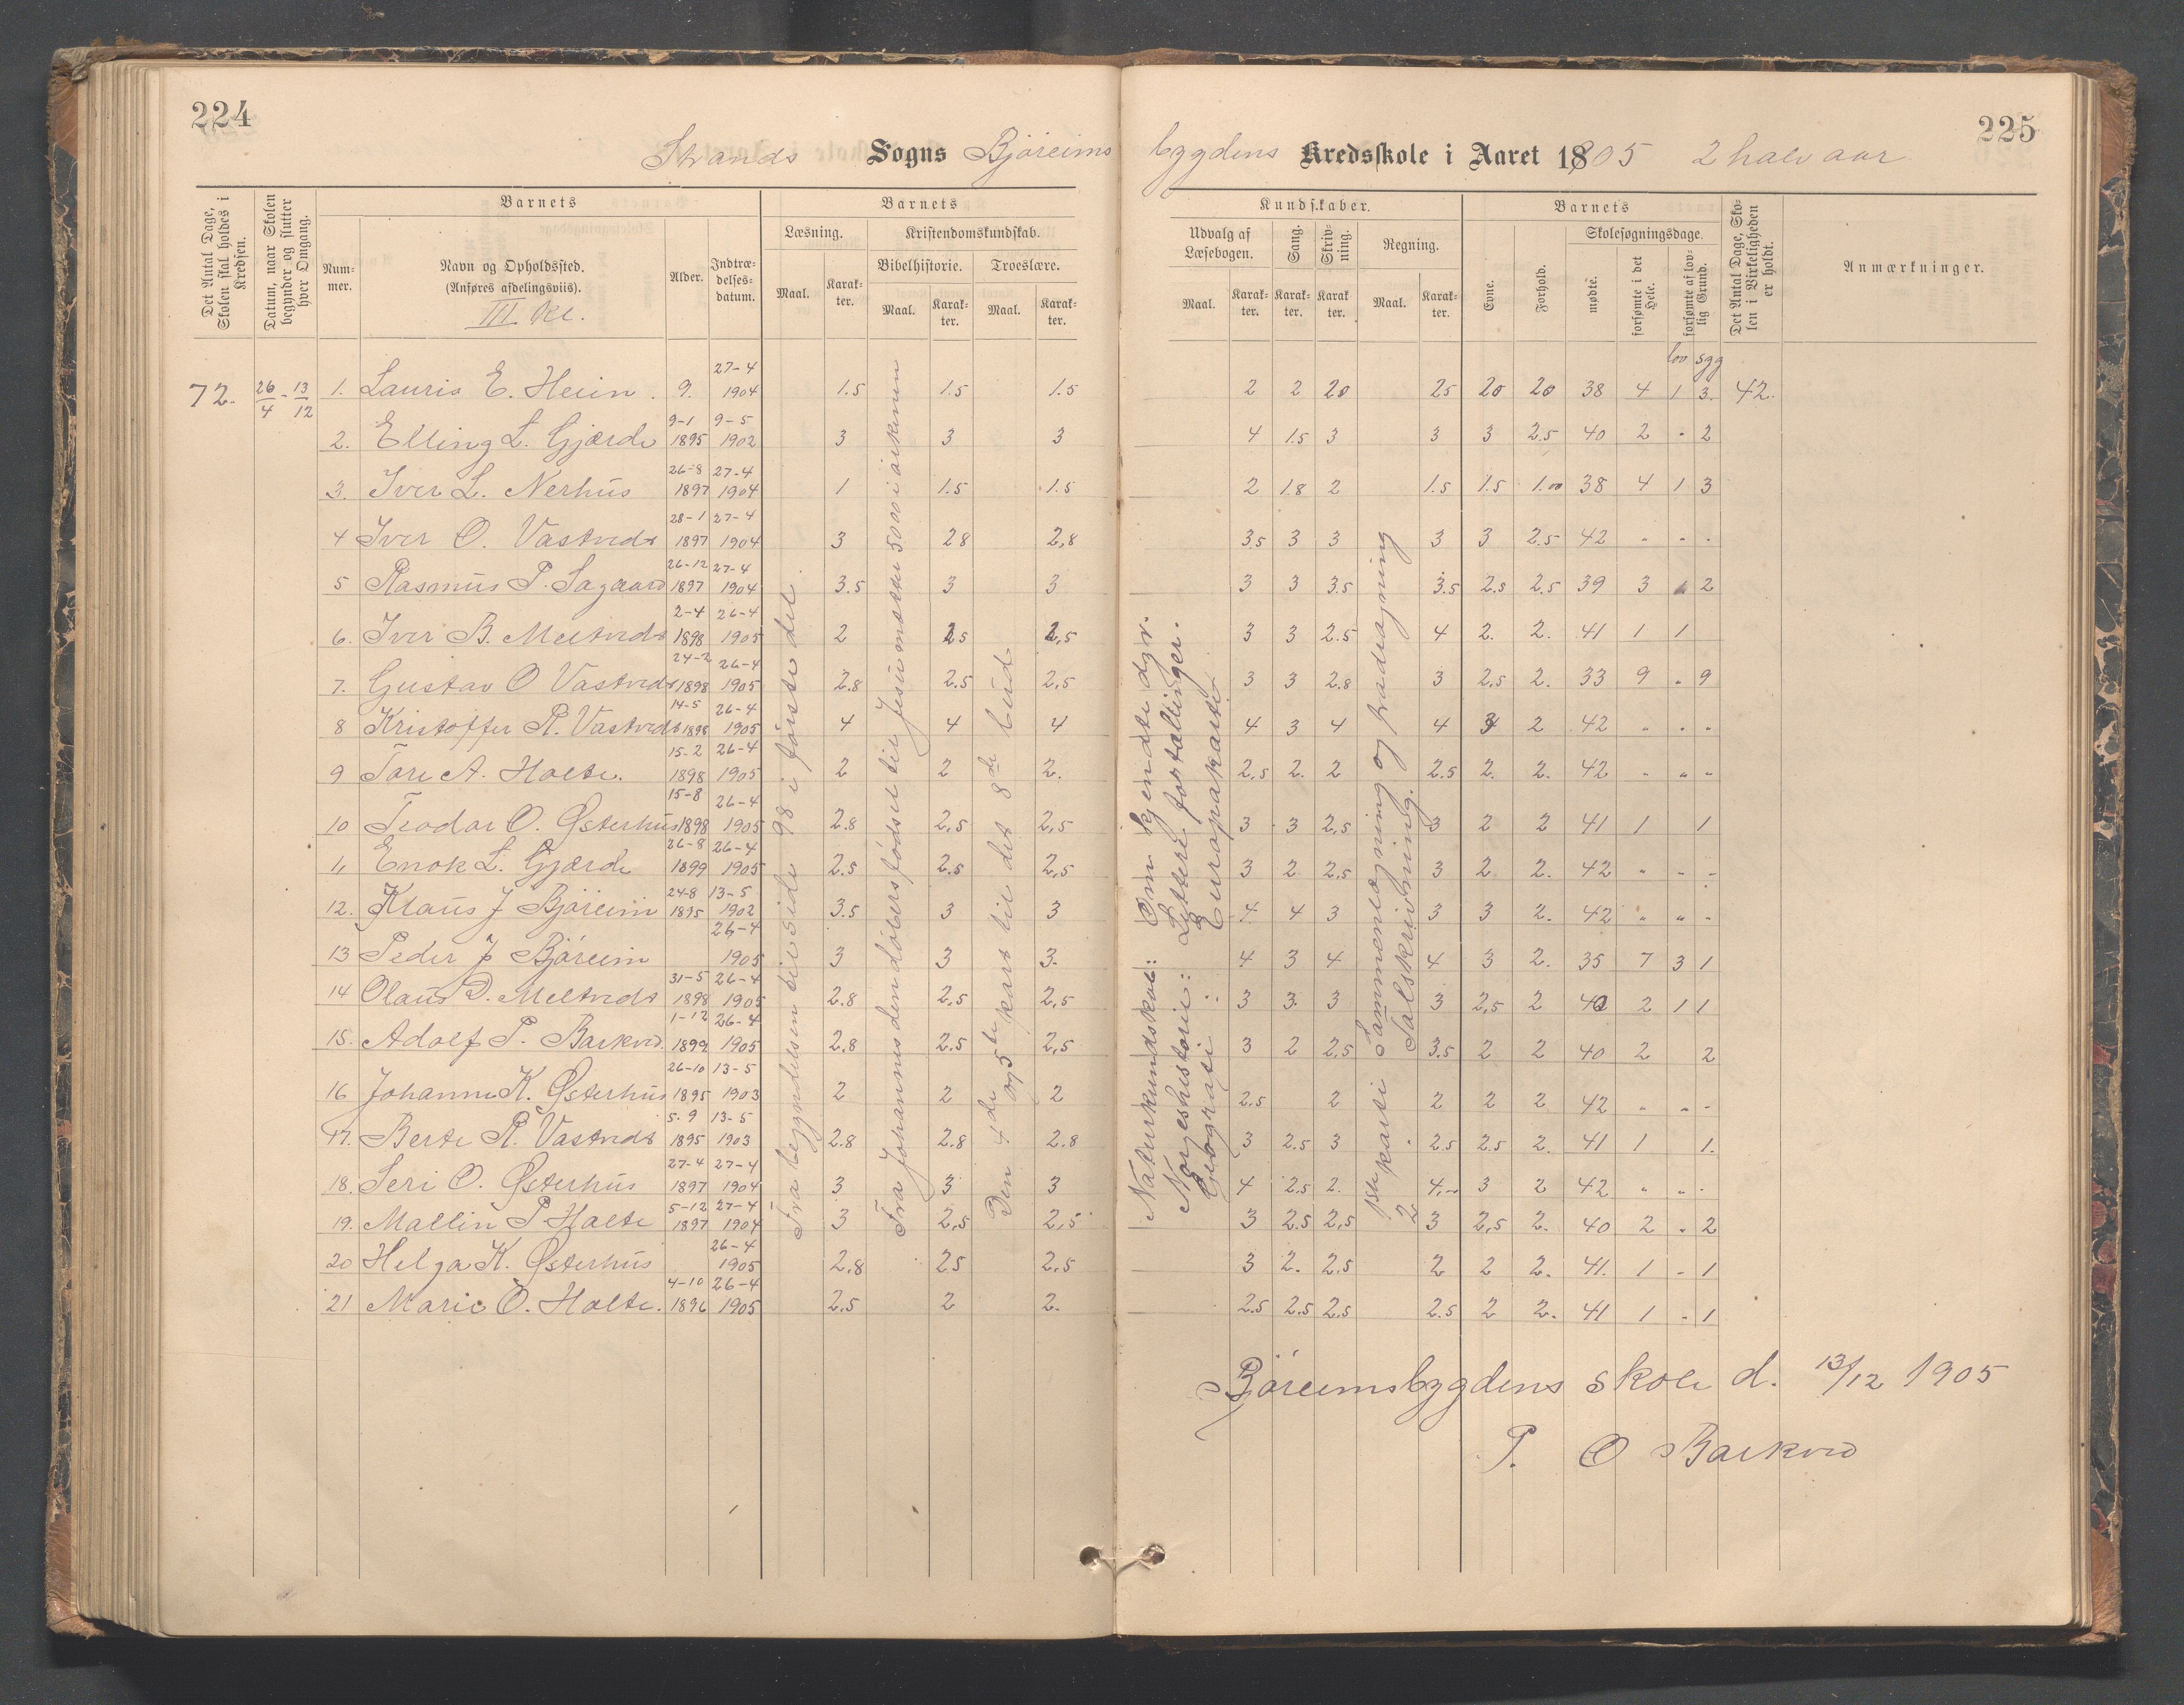 224
225
Strands Sogns Björeims bygdens Kredsskole i Aaret 1905 2 halv aar
Det Antal Dage, Skolen skal holdes i Kredsen.
Datum, naar Skolen begynder og slutter hver Omgang.
Barnets
Nummer.
Navn og Opholdssted.
(Anføres afdelingsviis).
III kl.
Alder.
Indtrædelsesdatum.
Barnets
Læsning.
Maal.
Karakter.
Kristendomskundskab.
Bibelhistorie.
Maal.
Karakter.
Troeslære.
Maal.
Karakter.
Kundskaber.
Udvalg af Læsebogen.
Maal.
Karakter.
Sang.
Karakter.
Skrivning.
Karakter.
Regning.
Maal.
Karakter.
Barnets
Evne.
Forhold.
Skolesøgningsdage.
mødte.
forsømte i det Hele.
forsømte af lovlig Grund.
Det Antal Dage, Skolen i Virkeligheden er holdt.
Anmærkninger.
lov sgg
72. 26/4 - 13/12 1. Lauris E. Heiin. 9. 27-4 1904 1.5 1.5 1.5 2 2 20 25 20 20 38 4 1 3. 42.
2. Elling L. Gjærde 9-1 1895 9-5 1902 3 3 3 4 1.5 3 3 3 2.5 40 2 - 2
3. Iver L. Nerhus 26-8 1897 27-4 1904 1 1.5 1.5 2 1.8 2 1.5 1.5 1.00 38 4 1 3
4 Iver O. Vastveds 28-1 1897 27-4 1904 3 28 2,8 3,5 3 3 3 3 2.5 42 - - -
5 Rasmus P. Sagaard 26-12 1897 27-4 1904 3.5 3 3 3 3 3.5 3.5 2.5 2.5 39 3 2
6. Iver B. Meltveds 2-4 1898 26-4 1905 2 2.5 2,5 3 3 2.5 4 2. 2. 41 1 1
7. Gustav O Vastveds 24-2 1898 26-4 1905 2.8 2.5 2,5 3 3 2.8 3 2,5 2. 33 9 - 9
8 Kristoffer R. Vastveds 14-5 1898 26-4 1905 4 4 4 4 3 4 4 3 2 42 " " "
9 Tore A. Holte. 15-2 1898 26-4 1905 2 2 2. 2,5 2. 2 2.5 2. 2. 42 " " "
10 Teodor O. Østerhus 15-8 1898 26-4 1905 2.8 2,5 2,5 3 3 2,5 3 2 2 41 1 1
11 Enok L. Gjærde 26-8 1899 26-4 1905 2.5 2.5 2,5 3 2 2,5 3 2 2. 42 " - -
12. Klaus J Björeim 24-8 1895 13-5 1902 3.5 3 3 4 4 3 3 3 2. 42 " " -
13 Peder J Björeim 26-4 1905 3 3 3. 4 3 4 4 3 2. 35 7 3 1
14 Olaus D. Meltveds 31-5 1898 26-4 1905 2.8 2,5 2,5 3 3. 3 3 2,5 2 40 2 1 1
15. Adolf P. Barkved. 1-12 1899 26-4 1905 2,8 2.5 2,5 3 2 2,5 3.5 2 2 40 2 2
16 Johanne K. Østerhus 26-10 1895 13-5 1903 2 2 2 2.5 2 2 2 2 42 " " -
17. Berte R. Vastveds 5-9 1895 13-5 1903 2.8 2.8 2.8 3 2.5 3 2.5 2.5 2. 41 1 1.
18. Seri O. Østerhus 27-4 1897 27-4 1904 3 3 3 4 2.5 2. 4,- 3 2 42 " " -
19. Mallin P Holte 5-12 1897 27-4 1904 3 2,5 2,5 3 2.5 2,5 3 2,5 2. 40 2 - 2
20 Helga K. Østerhus 26-4 1905 2,8 25 2,5 3 2. 2,5 2 2 2. 41. 1 - 1
21 Marie O. Holte. 4-10 1896 26-4 1905 2,5 2 2. 2.5 2.5 2,5 2.5 2 2. 41 1 - 1
Fra begyndelsen til side 98 i første del.
Fra Johannes den døbers fødsel til Jesu mætter 5000 i ørkenen
Den 4de og 5te part til det 8de bud
Naturkundskab: Om kjendte dyr.
Norgeshistorie: Lettere fortællinger.
Geografi: Europakartet
Sammenlægning og fradragning
Talskrivning.
Björeimsbygdens skole d. 13/12 1905
P. O Barkved